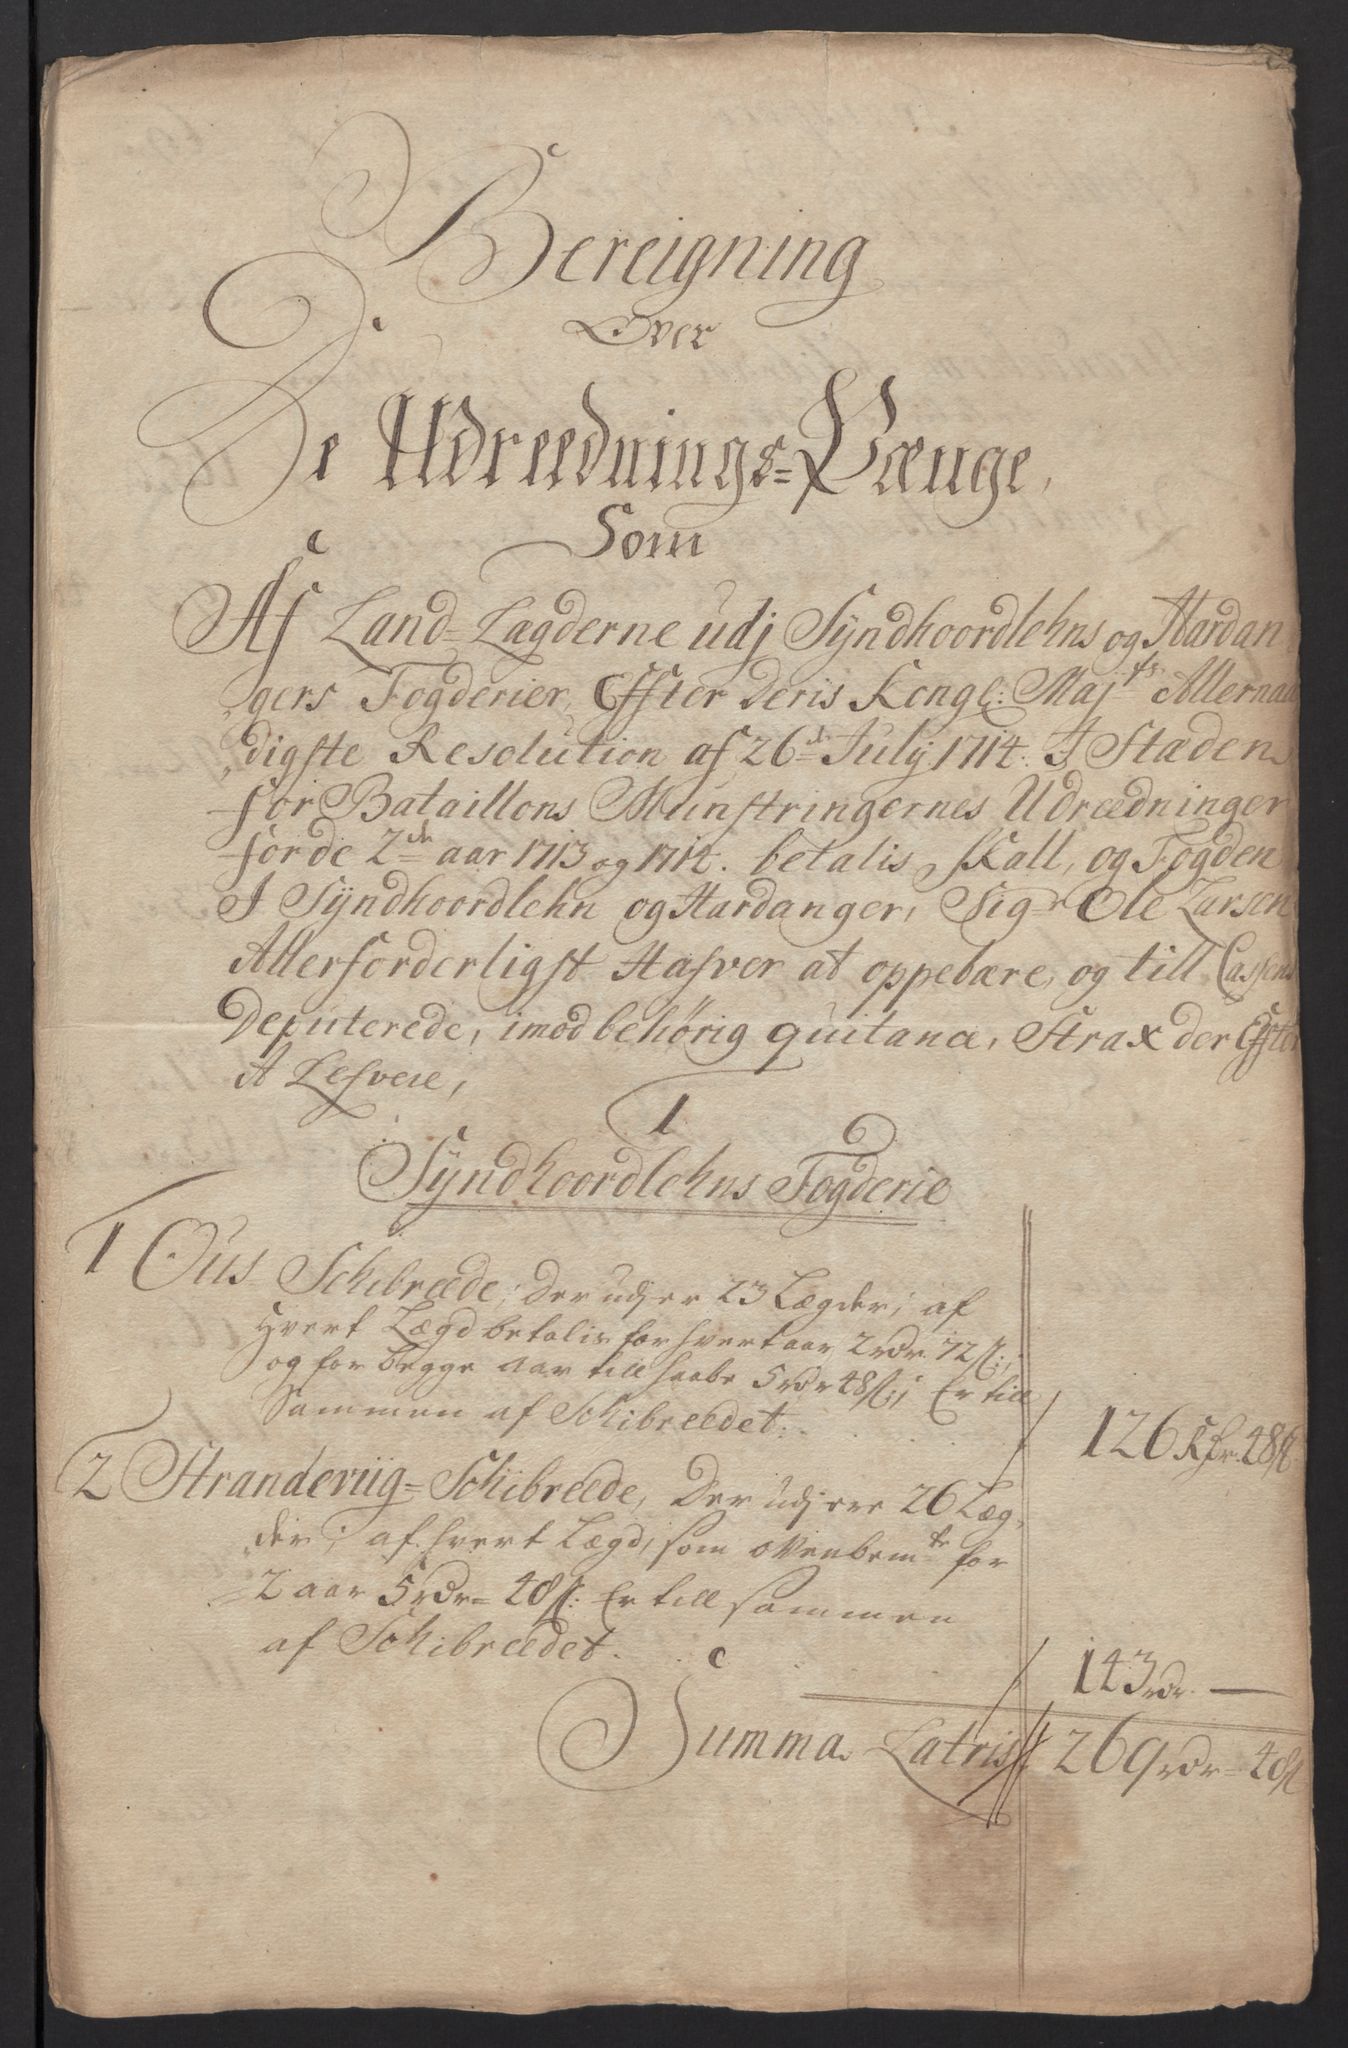 Bereigning
Over
De Udreednings=Pænge,
Som
Af Land=Lægderne udj Syndhoordlehns og Hardan
gers Fogderier, Effter Deris Kongl: Maj.ts Allernaa
digste Resolution af 26de July 1714. I Stæden
for Bataillons Münstringernes Udreedninger
for de 2de aar 1713 og 1714. betalis skall, og Fogden
I Syndhoordlehn og Hardanger, Sigr Ole Larsen
Allerforderligst Hafver at oppebære, og till Cassens
Deputerede, imod behørig quitance, Strax der Effter
A Lefvere,
1
Syndhoordlehns Fogderie
1 Ous Schibreede, Der udj er 23 Lægder; af
Hvert Lægd betalis for hvert aar 2 rdr 72 s;
og for begge aar till haabe 5 rdr 48 s; Er till
Sammen af Schibreedet. 126 Rdr. 48 s
2 Strandeviig=Schibreede, Der udj ere 26 Læg,
der; af hvert Lægd, som ovenbemte for
2 aar 5 rdr= 48 s: Er till sammen
af Schibreedet. 143 rdr. —
Summa Latris 269 rdr= 48 s